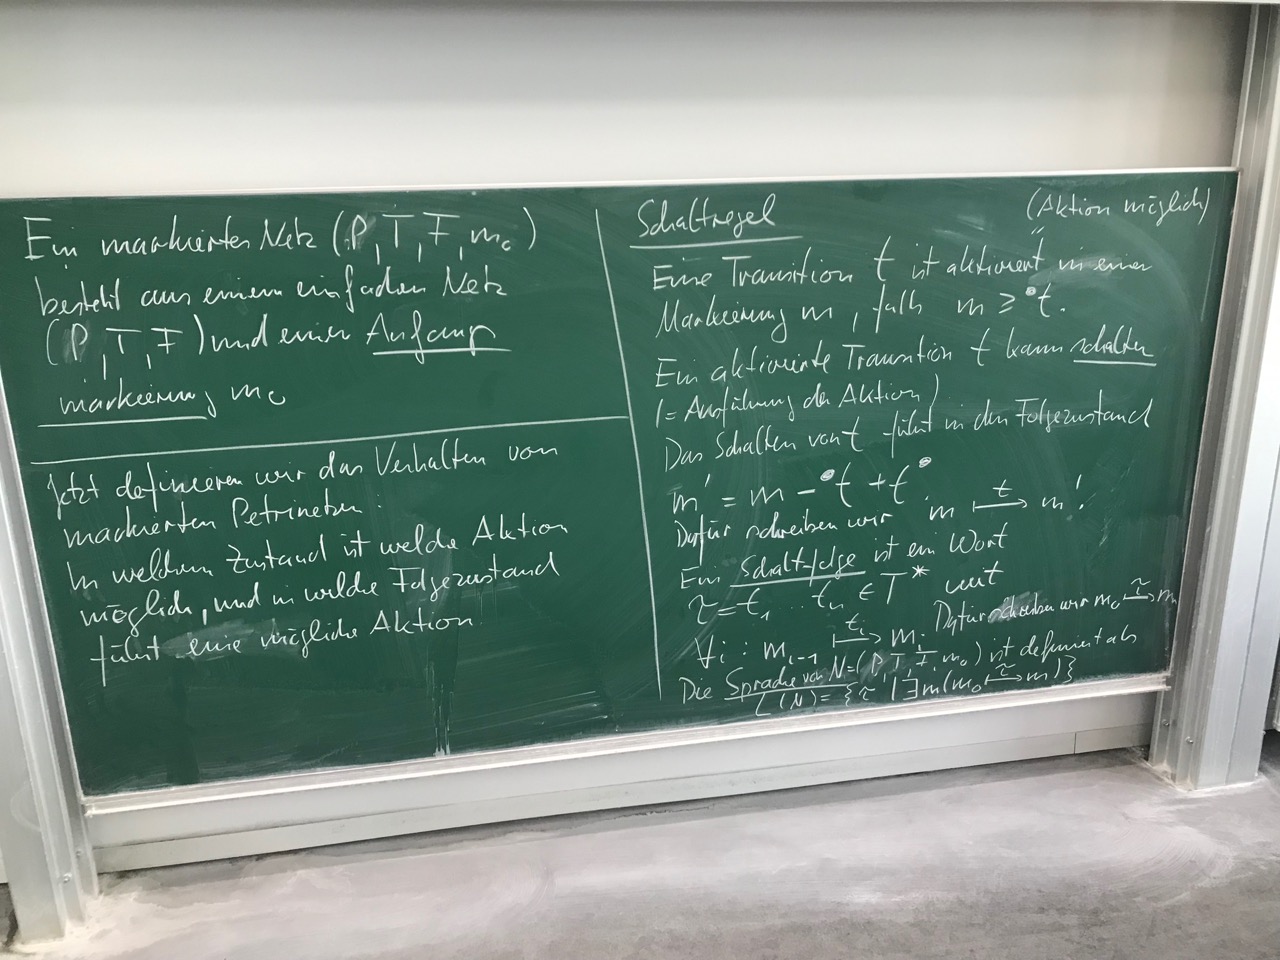 Ein markiertes Netz (P, T, F, m₀)
besteht aus einem einfachen Netz
(P, T, F) und einer Anfangs
markierung m₀
Jetzt definieren wir das Verhalten von
markierten Petrinetzen:
In welchem Zustand ist welche Aktion
möglich, und in welche Folgezustand
führt eine mögliche Aktion.
Schaltregel
(Aktion möglich)
Eine Transition t ist aktiviert in einer
Markierung m, falls m ≥ •t.
Ein aktivierte Transition t kann schalten
(= Ausführung der Aktion)
Das Schalten von t führt in den Folgezustand
m' = m − •t + t•
Dafür schreiben wir m ⟼ᵗ m'.
Ein Schaltfolge ist ein Wort
τ = t₁ ... tₙ ∈ T* mit
∀i : mᵢ₋₁ ⟼ᵗⁱ mᵢ. Dafür schreiben wir m₀ ⟼^τ mₙ
Die Sprache von N = (P, T, F, m₀) ist definiert als
L(N) = {τ | ∃m (m₀ ⟼^τ m)}